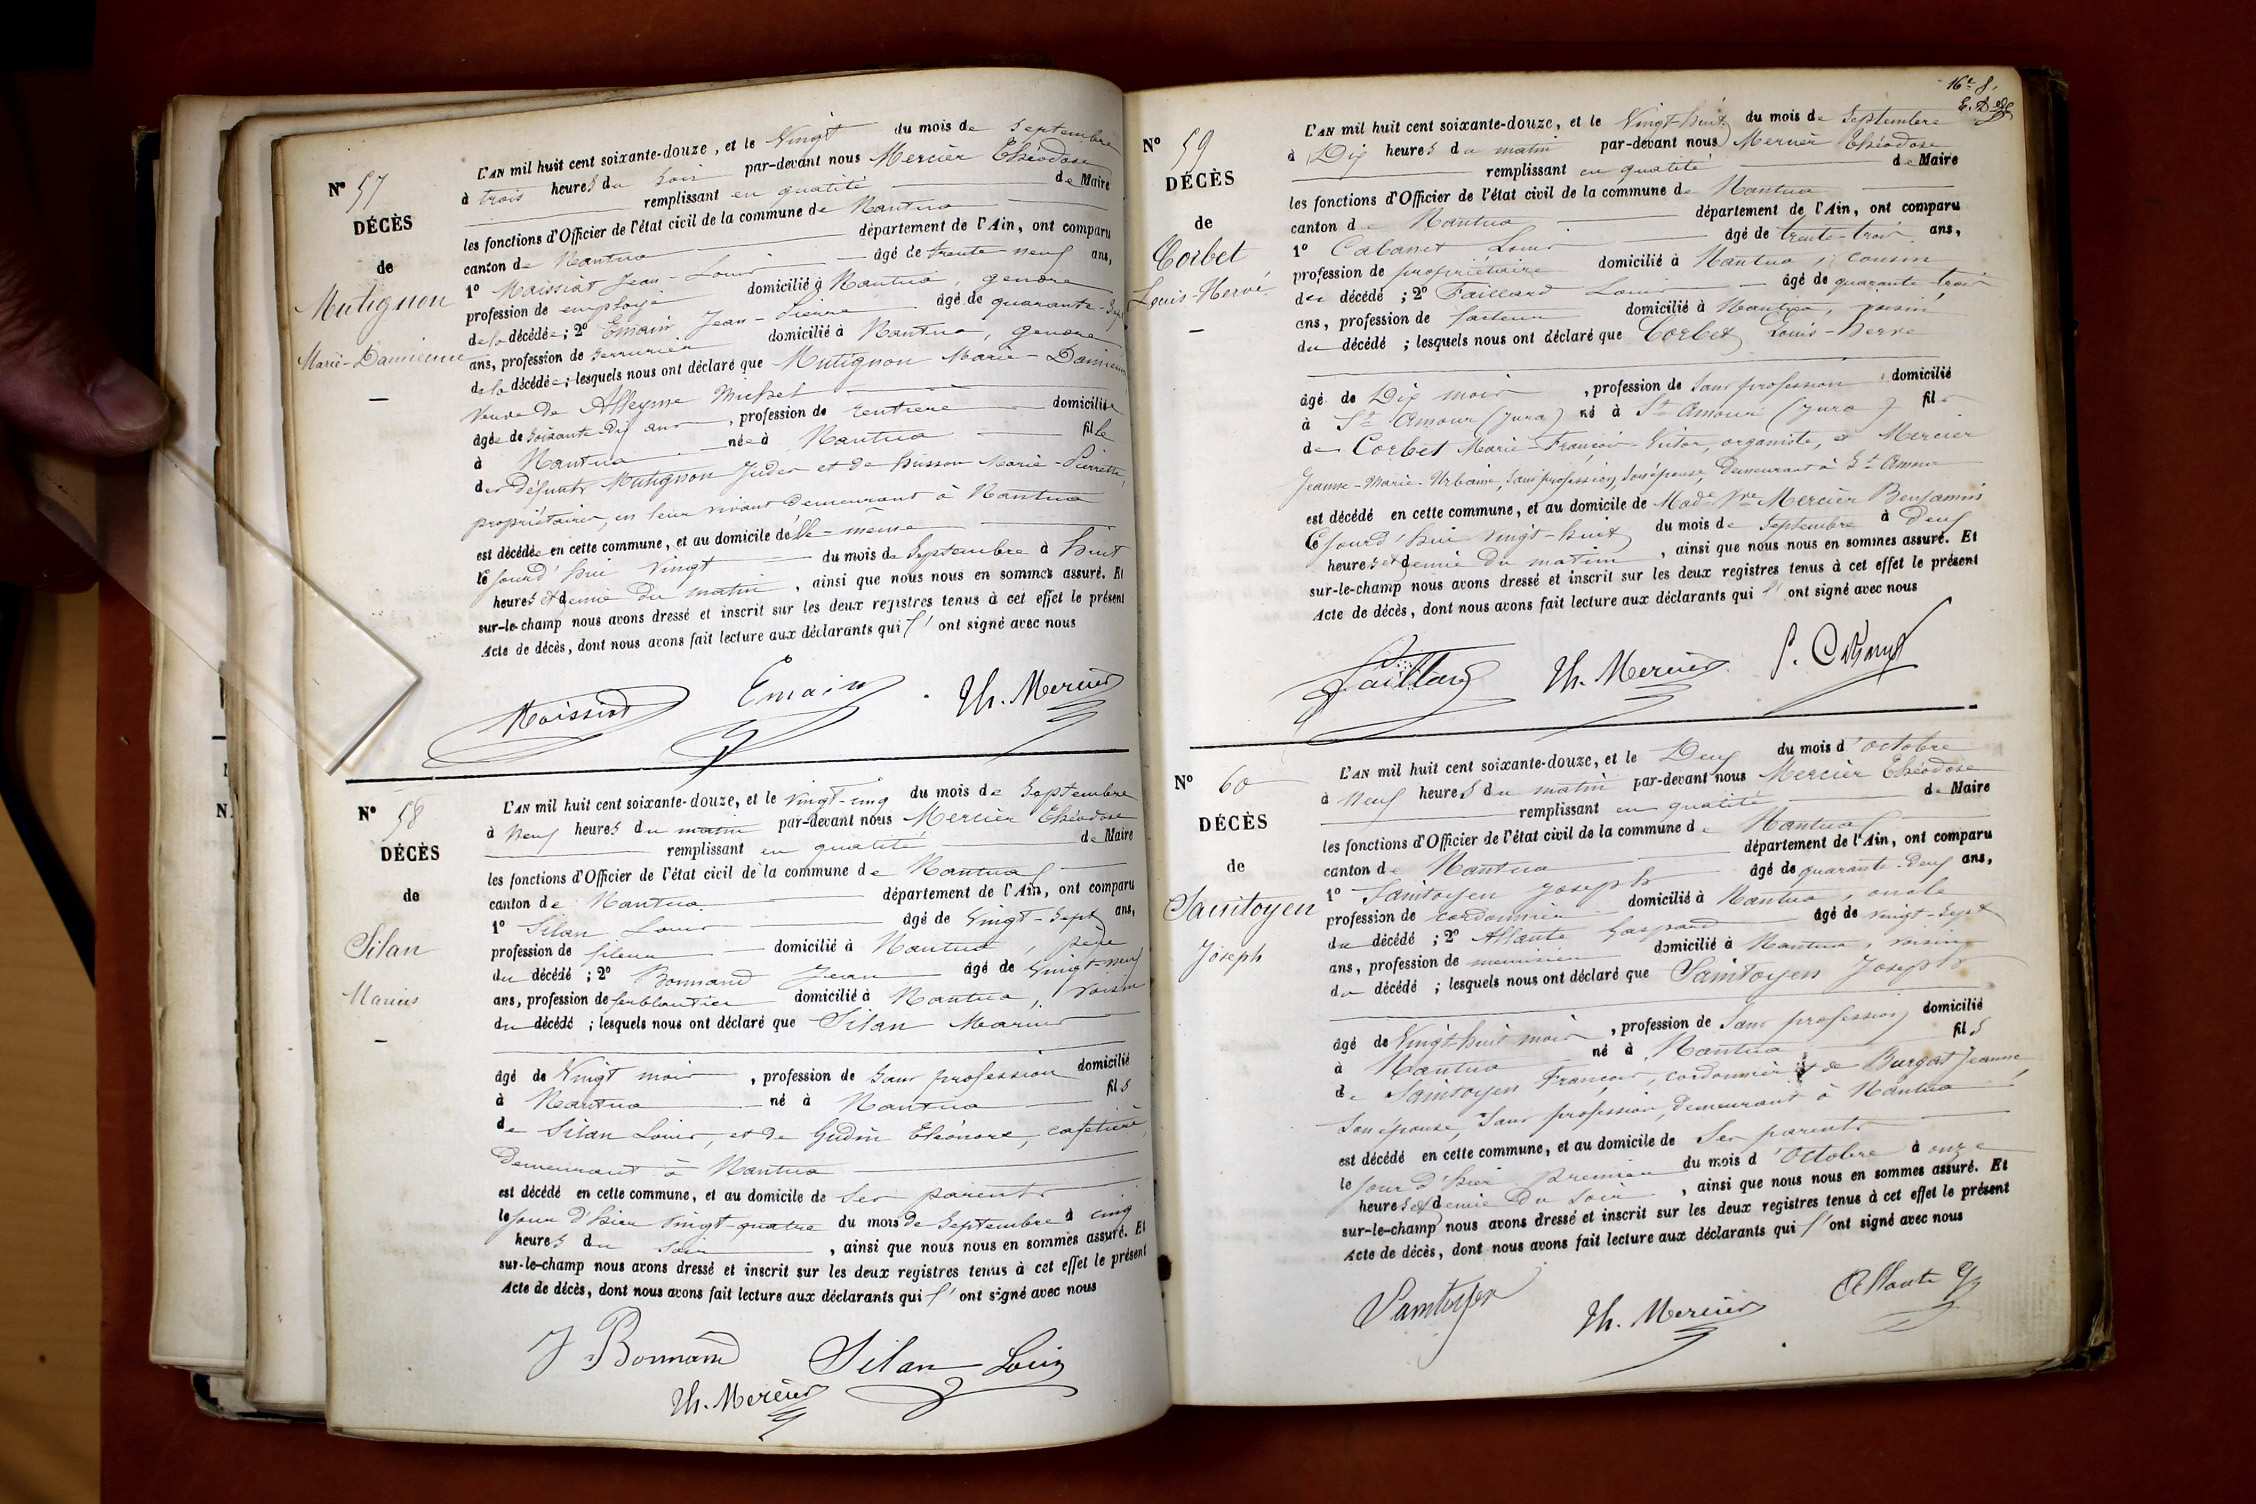 N° 57
DÉCÈS
de
Mutignon
Marie-Damienne
L'AN mil huit cent soixante-douze, et le Vingt du mois de Septembre
à trois heures du soir par-devant nous Mercier Théodose
remplissant en qualité de Maire
les fonctions d'Officier de l'état civil de la commune de Nantua
canton de Nantua département de l'Ain, ont comparu
1° Moissiat Jean-Louis âgé de trente neuf ans,
profession de employé domicilié à Nantua, gendre
de la décédée; 2° Emain Jean-Pierre âgé de quarante-sept
ans, profession de serrurier domicilié à Nantua, gendre
de la décédée; lesquels nous ont déclaré que Mutignon Marie-Damienne
Veuve de Alleyme Michel
âgée de soixante-dix ans, profession de rentière domiciliée
à Nantua née à Nantua fille
des défunts Mutignon Juder et de Husson Marie-Pierrette,
propriétaires, en leur vivant demeurant à Nantua
est décédée en cette commune, et au domicile d'elle-même
le jourd'hui vingt du mois de Septembre à huit
heures et demie du matin, ainsi que nous nous en sommes assuré. Et
sur-le-champ nous avons dressé et inscrit sur les deux registres tenus à cet effet le présent
Acte de décès, dont nous avons fait lecture aux déclarants qui l'ont signé avec nous
Moissiat Emain Th. Mercier
N° 58
DÉCÈS
de
Silan
Marius
L'AN mil huit cent soixante-douze, et le vingt-cinq du mois de Septembre
à Neuf heures du matin par-devant nous Mercier Théodose
remplissant en qualité de Maire
les fonctions d'Officier de l'état civil de la commune de Nantua
canton de Nantua département de l'Ain, ont comparu
1° Silan Louis âgé de Vingt-sept ans,
profession de fileur domicilié à Nantua, père
du décédé; 2° Bonnand Jean âgé de Vingt-neuf
ans, profession de ferblantier domicilié à Nantua, voisin
du décédé; lesquels nous ont déclaré que Silan Marius
âgé de Vingt mois, profession de sans profession domicilié
à Nantua né à Nantua fils
de Silan Louis, et de Gudin Eléonore, cafetière,
demeurant à Nantua
est décédé en cette commune, et au domicile de ses parents
le jour d'hier vingt-quatre du mois de Septembre à cinq
heures du soir, ainsi que nous nous en sommes assuré. Et
sur-le-champ nous avons dressé et inscrit sur les deux registres tenus à cet effet le présent
Acte de décès, dont nous avons fait lecture aux déclarants qui l'ont signé avec nous
J Bonnand Silan Louis
Th. Mercier
16e f.
N° 59
DÉCÈS
de
Corbet
Louis-Hervé
L'AN mil huit cent soixante-douze, et le Vingt-huit du mois de Septembre
à Dix heures du matin par-devant nous Mercier Théodose
remplissant en qualité de Maire
les fonctions d'Officier de l'état civil de la commune de Nantua
canton de Nantua département de l'Ain, ont comparu
1° Cabanet Louis âgé de trente-trois ans,
profession de propriétaire domicilié à Nantua, cousin
du décédé; 2° Faillard Louis âgé de quarante trois
ans, profession de facteur domicilié à Nantua, voisin
du décédé; lesquels nous ont déclaré que Corbet Louis-Herve
âgé de Dix mois, profession de sans profession domicilié
à St Amour (Jura) né à St Amour (Jura) fils
de Corbet Marie-François-Victor, organiste, et Mercier
Jeanne-Marie-Urbaine, sans profession, son épouse, demeurant à St Amour
est décédé en cette commune, et au domicile de Made Vve Mercier Benjamin
Cejourd'hui vingt-huit du mois de Septembre à deux
heures et demie du matin, ainsi que nous nous en sommes assuré. Et
sur-le-champ nous avons dressé et inscrit sur les deux registres tenus à cet effet le présent
Acte de décès, dont nous avons fait lecture aux déclarants qui l'ont signé avec nous
Faillard Th. Mercier
N° 60
DÉCÈS
de
Saintoyen
Joseph
L'AN mil huit cent soixante-douze, et le Deux du mois d'octobre
à Neuf heures du matin par-devant nous Mercier Théodose
remplissant en qualité de Maire
les fonctions d'Officier de l'état civil de la commune de Nantua
canton de Nantua département de l'Ain, ont comparu
1° Saintoyen Joseph âgé de quarante-deux ans,
profession de cordonnier domicilié à Nantua, oncle
du décédé; 2° Allante Gaspard âgé de vingt-sept
ans, profession de menuisier domicilié à Nantua, voisin
du décédé; lesquels nous ont déclaré que Saintoyen Joseph
âgé de Vingt-huit mois, profession de sans profession domicilié
à Nantua né à Nantua fils
de Saintoyen François, cordonnier et de Burgat Jeanne,
son épouse, sans profession, demeurant à Nantua
est décédé en cette commune, et au domicile de ses parents
le jour d'hier Premier du mois d'Octobre à onze
heures et demie du soir, ainsi que nous nous en sommes assuré. Et
sur-le-champ nous avons dressé et inscrit sur les deux registres tenus à cet effet le présent
Acte de décès, dont nous avons fait lecture aux déclarants qui l'ont signé avec nous
Saintoyen Th. Mercier Allante G